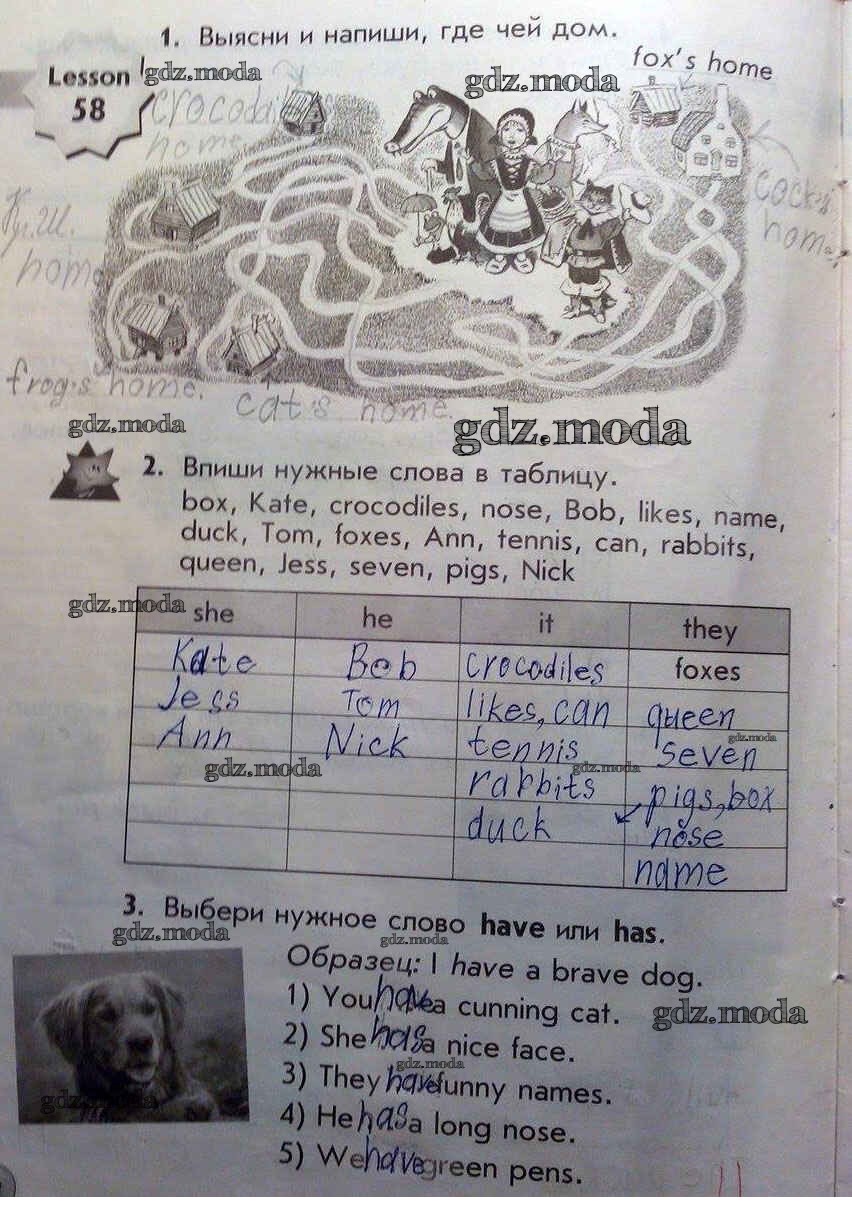 1. Выясни и напиши, где чей дом.
Lesson
58
gdz.moda
gdz.moda
fox's home
crocodile
home
cock's
home
home
frog's home.
cat's home.
gdz.moda
gdz.moda
2. Впиши нужные слова в таблицу.
box, Kate, crocodiles, nose, Bob, likes, name,
duck, Tom, foxes, Ann, tennis, can, rabbits,
queen, Jess, seven, pigs, Nick
gdz.moda
she he it they
Kate Bob crocodiles foxes
Jess Tom likes, can queen
gdz.moda
Ann Nick tennis seven
gdz.moda
gdz.moda
rabbits pigs, box
duck nose
name
3. Выбери нужное слово have или has.
gdz.moda
gdz.moda
Образец: I have a brave dog.
1) You have a cunning cat.
gdz.moda
2) She has a nice face.
gdz.moda
3) They have funny names.
gdz.moda
4) He has a long nose.
5) We have green pens.